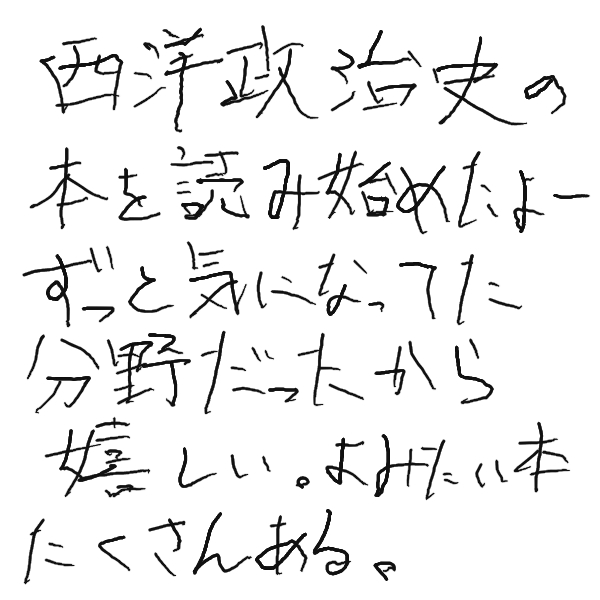 西洋政治史の
本を読み始めたよー
ずっと気になってた
分野だったから
嬉しい。よみたい本
たくさんある。